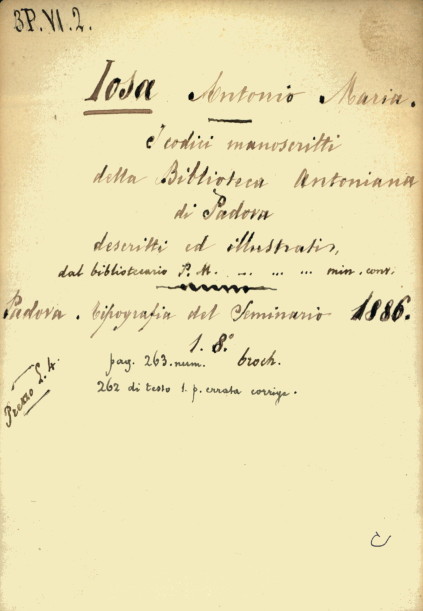 3P.VI.2.
Iosa Antonio Maria.
I codici manoscritti
della Biblioteca Antoniana
di Padova
descritti ed illustrati,
dal bibliotecario P. M. ... ... ... min. conv.
Padova. tipografia del Seminario 1886.
1. 8.º
pag. 263. num. broch.
262 di testo 1. p. errata corrige.
Prezzo L. 4.